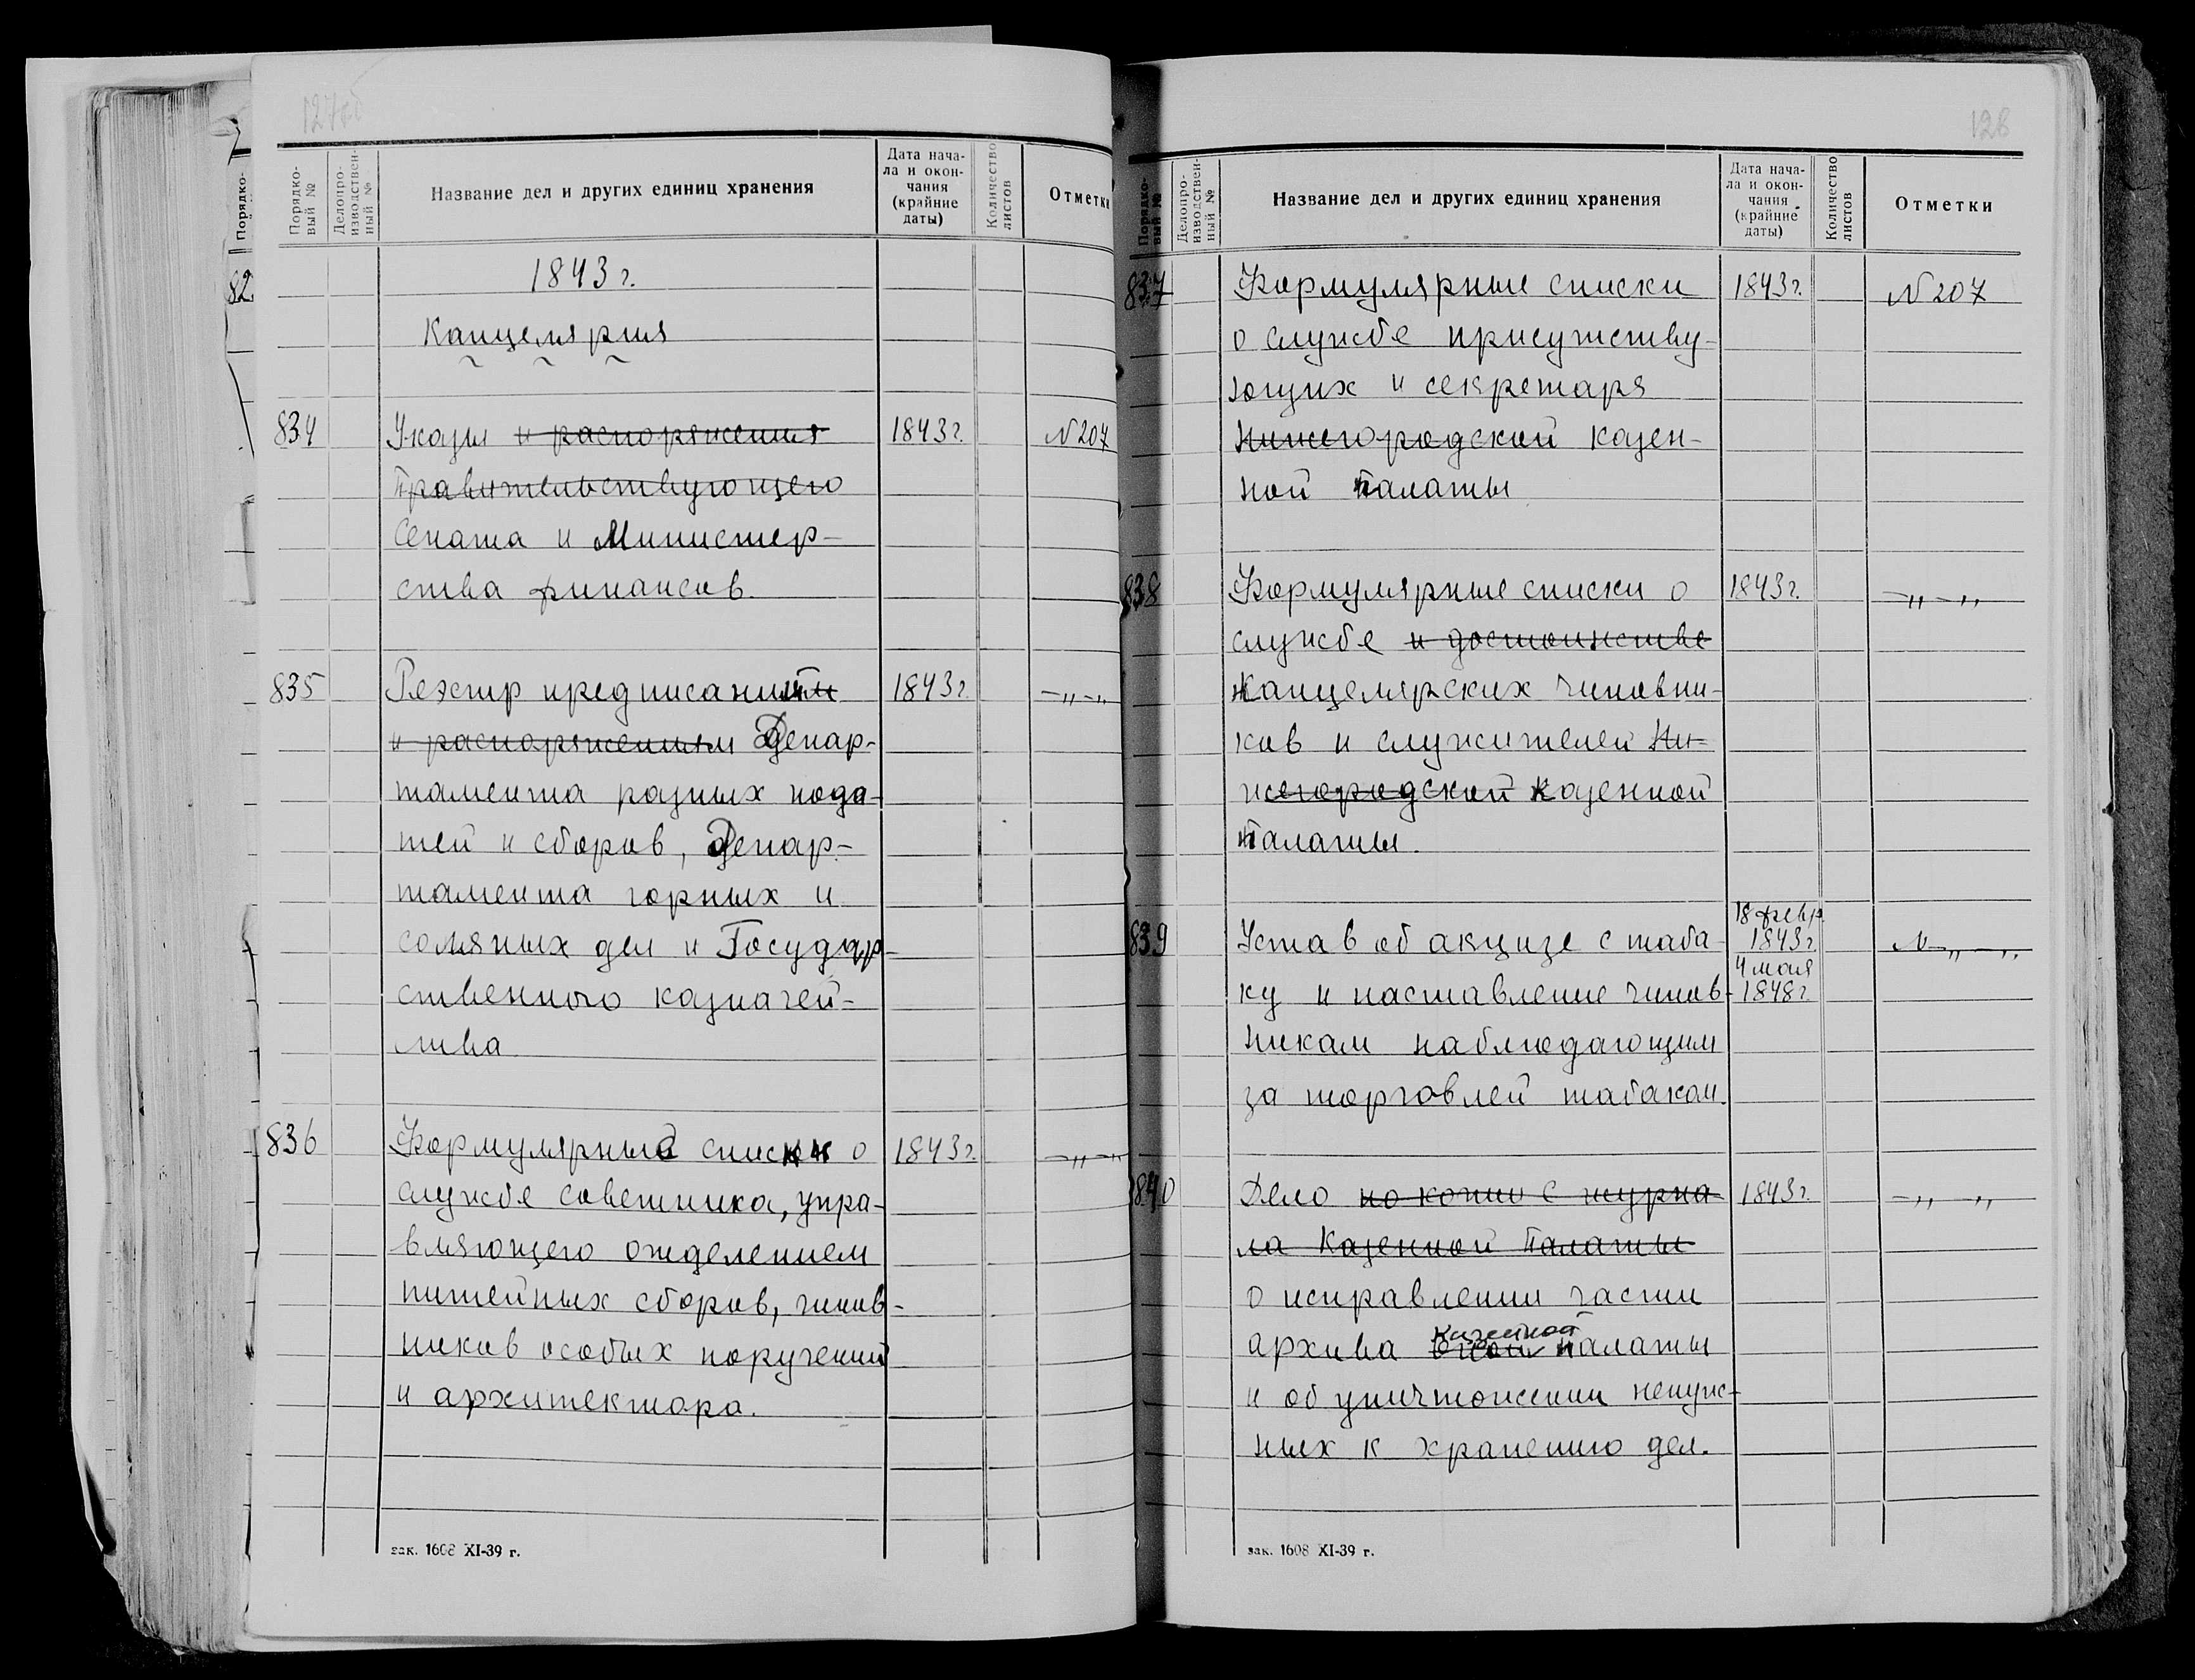 127об
Порядко-
вый №
Делопро-
изводствен-
ный №
Название дел и других единиц хранения
Дата нача-
ла и окон-
чания
(крайние
даты)
Количество
листов
Отметки
1843 г.
Канцелярия
834 Указы и распоряжения 1843 г. N 207
Правительствующего
Сената и Министер-
ства финансов.
835 Реэстр предписаний 1843 г. —„—„
и распоряжениям Депар-
тамента разных пода-
тей и сборов, Депар-
тамента горных и
соляных дел и Государ-
ственного казначей-
ства
836 Формулярные списки о 1843 г. —„—„
службе советника, упра-
вляющего отделением
питейных сборов, чинов-
ников особых поручений
и архитектора.
зак. 1608 XI-39 г.
128
Порядко-
вый №
Делопро-
изводствен-
ный №
Название дел и других единиц хранения
Дата нача-
ла и окон-
чания
(крайние
даты)
Количество
листов
Отметки
837 Формулярные списки 1843 г. N 207
о службе присутству-
ющих и секретаря
Нижегородской казен-
ной палаты
838 Формулярные списки о 1843 г. —„—„
службе и достоинстве
канцелярских чиновни-
ков и служителей Ни-
жегородской казенной
палаты.
18 февр.
839 Устав об акцизе с таба- 1843 г. N —„—„
4 мая
ку и наставление чинов- 1848 г.
никам наблюдающим
за торговлей табаком.
840 Дело по копии с журна 1843 г. —„—„
ла Казенной Палаты
о исправлении части
казенной
архива палаты
и об уничтожении ненуж-
ных к хранению дел.
зак. 1608 XI-39 г.